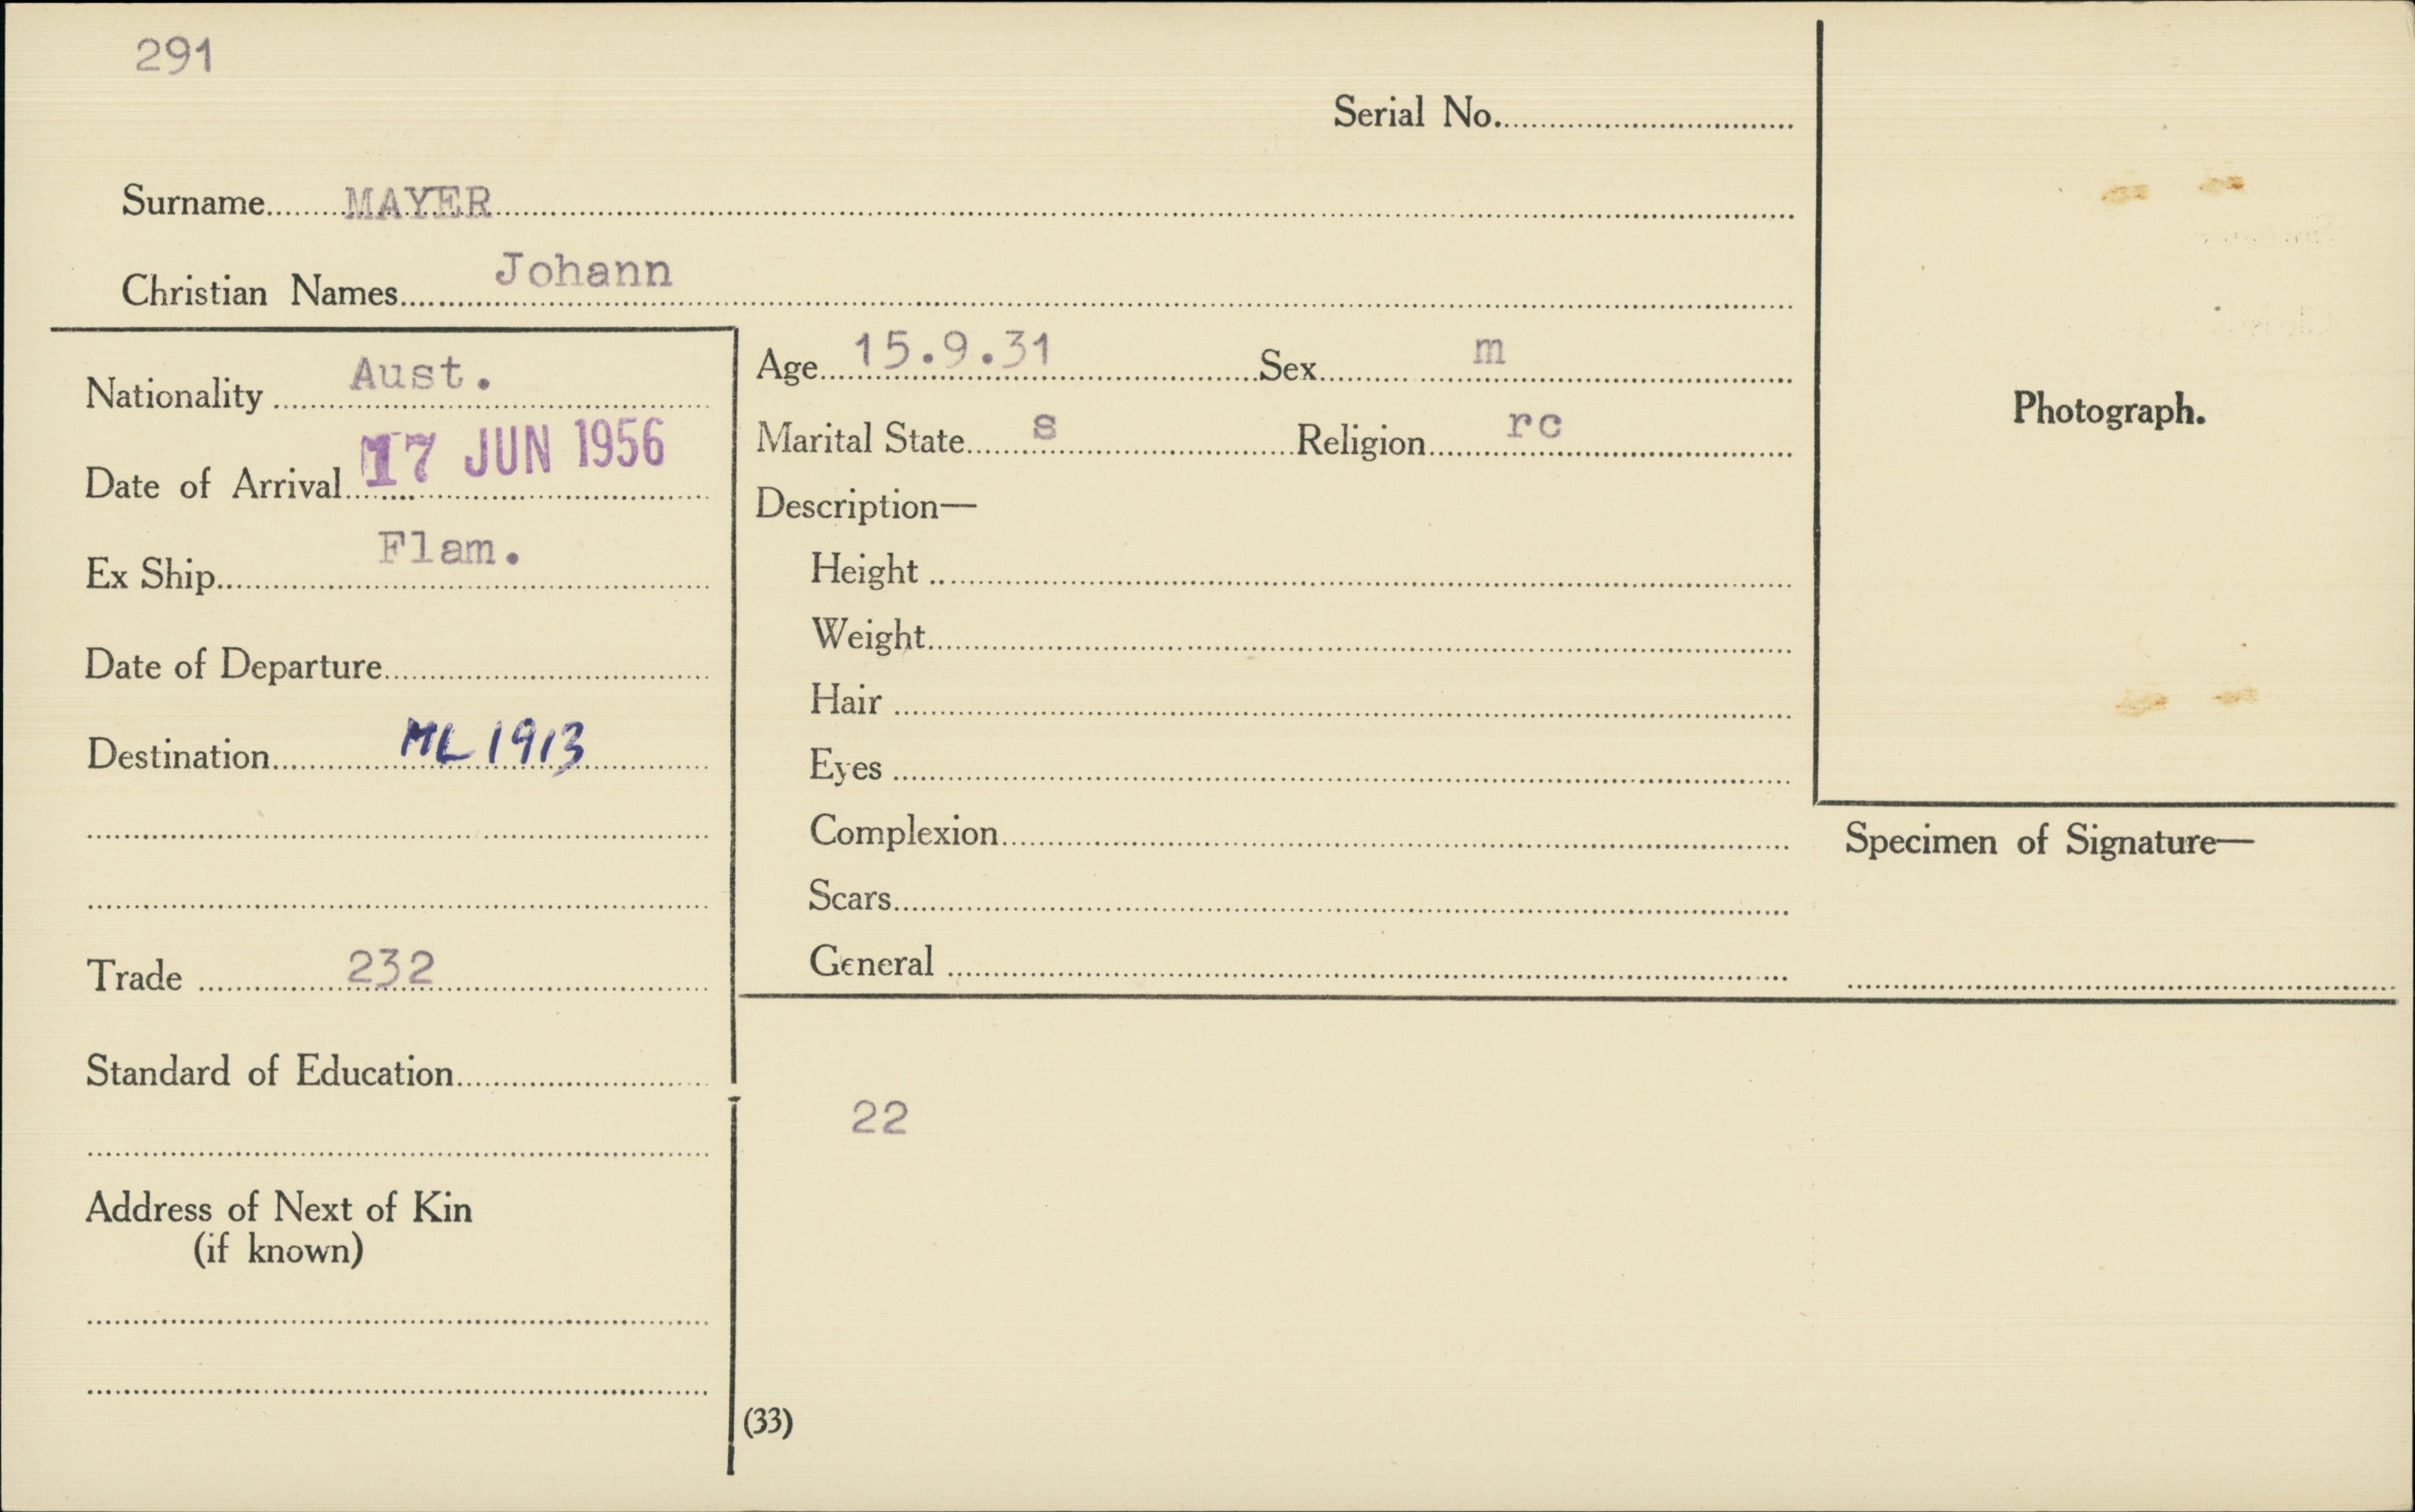 291
Serial No.
Surname MAYER
Christian Names Johann
Nationality Aust.
Date of Arrival 17 JUN 1956
Ex Ship Flam.
Date of Departure
Destination ML 1913
Trade 232
Standard of Education
Address of Next of Kin
(if known)
Age 15.9.31 Sex m
Marital State s Religion rc
Description—
Height
Weight
Hair
Eyes
Complexion
Scars
General
22
(33)
Photograph.
Specimen of Signature—